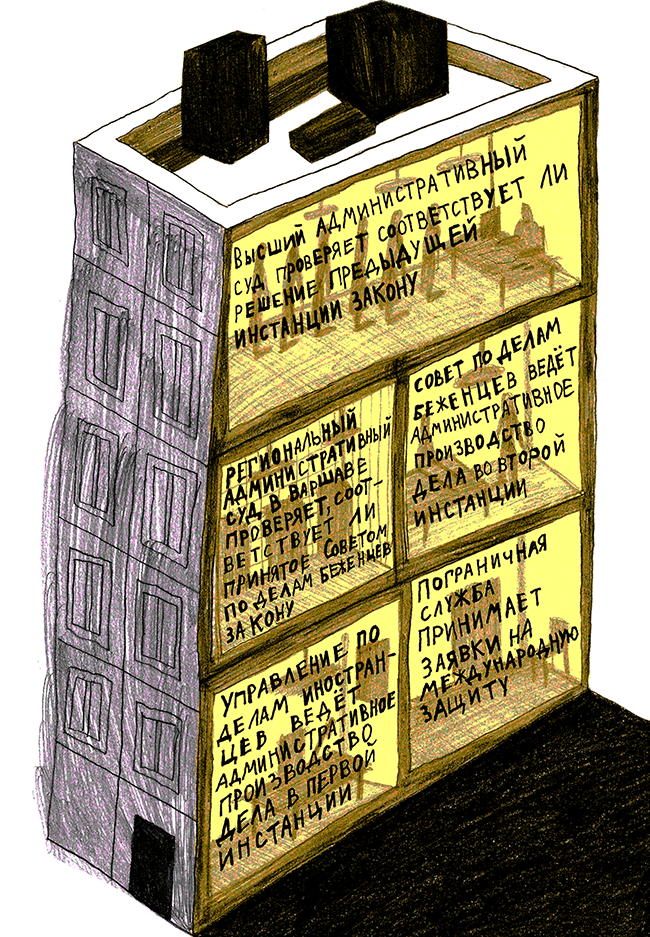 ВЫСШИЙ АДМИНИСТРАТИВНЫЙ
СУД ПРОВЕРЯЕТ СООТВЕТСТВУЕТ ЛИ
РЕШЕНИЕ ПРЕДЫДУЩЕЙ
ИНСТАНЦИИ ЗАКОНУ
СОВЕТ ПО ДЕЛАМ
БЕЖЕНЦЕВ ВЕДЁТ
АДМИНИСТРАТИВНОЕ
ПРОИЗВОДСТВО
ДЕЛА ВО ВТОРОЙ
ИНСТАНЦИИ
РЕГИОНАЛЬНЫЙ
АДМИНИСТРАТИВНЫЙ
СУД В ВАРШАВЕ
ПРОВЕРЯЕТ, СООТ-
ВЕТСТВУЕТ ЛИ
ПРИНЯТОЕ СОВЕТОМ
ПО ДЕЛАМ БЕЖЕНЦЕВ
ЗАКОНУ
ПОГРАНИЧНАЯ
СЛУЖБА
ПРИНИМАЕТ
ЗАЯВКИ НА
МЕЖДУНАРОДНУЮ
ЗАЩИТУ
УПРАВЛЕНИЕ ПО
ДЕЛАМ ИНОСТРАН-
ЦЕВ ВЕДЁТ
АДМИНИСТРАТИВНОЕ
ПРОИЗВОДСТВО
ДЕЛА В ПЕРВОЙ
ИНСТАНЦИИ